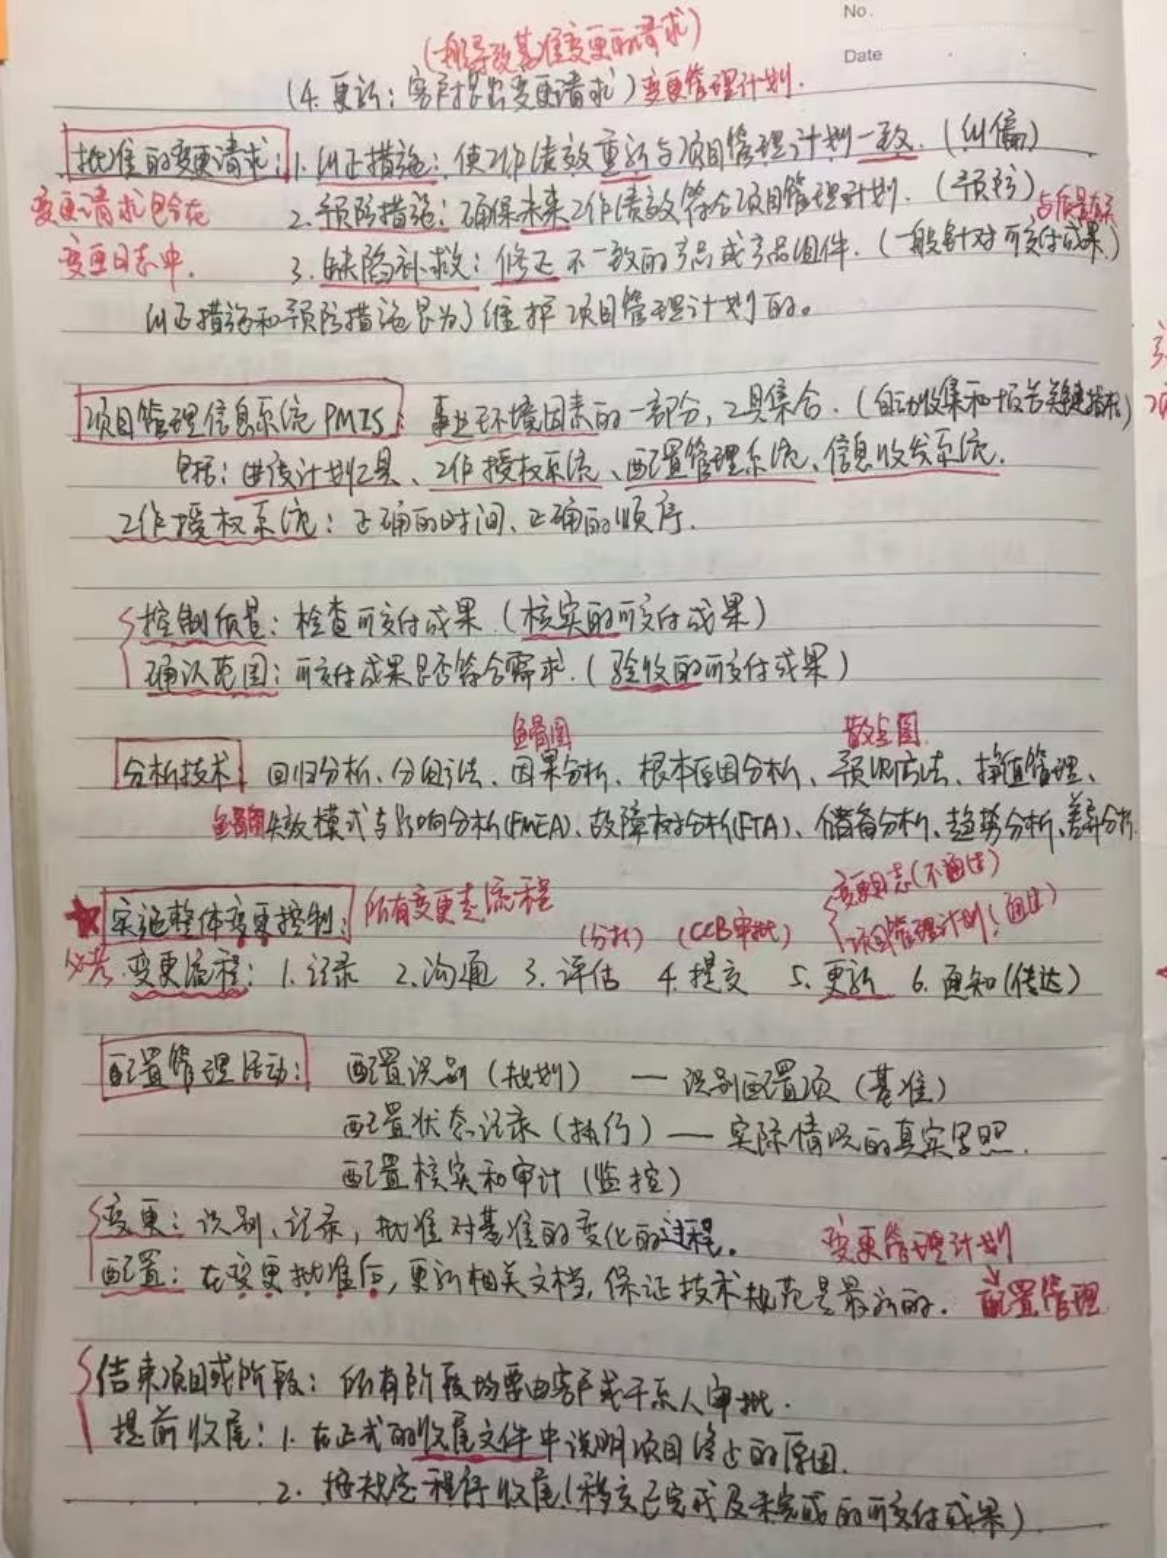 No.
Date
(一般导致基准变更的请求)
(4. 更新：客户提出变更请求) 变更管理计划.
批准的变更请求：1. 纠正措施：使工作绩效重新与项目管理计划一致. (纠偏)
变更请求包含在
2. 预防措施：确保未来工作绩效符合项目管理计划. (预防)
与质量有关
变更日志中.
3. 缺陷补救：修正不一致的产品或产品组件. (一般针对可交付成果)
纠正措施和预防措施是为了维护项目管理计划的。
项目管理信息系统PMIS：事业环境因素的一部分, 工具集合. (自动收集和报告关键指标)
包括：进度计划工具、工作授权系统、配置管理系统、信息收发系统.
工作授权系统：正确的时间、正确的顺序.
控制质量：检查可交付成果. (核实的可交付成果)
确认范围：可交付成果是否符合需求. (验收的可交付成果)
鱼骨图 散点图
分析技术 回归分析、分组方法、因果分析、根本原因分析、预测方法、挣值管理、
鱼骨图 失效模式与影响分析(FMEA)、故障树分析(FTA)、储备分析、趋势分析、差异分析.
变更日志(不通过)
实施整体变更控制：所有变更走流程
(分析) (CCB审批) 项目管理计划(通过)
必考 变更流程：1. 记录 2. 沟通 3. 评估 4. 提交 5. 更新 6. 通知(传达)
配置管理活动： 配置识别 (规划) — 识别配置项 (基准)
配置状态记录 (执行) — 实际情况的真实写照.
配置核实和审计 (监控)
变更：识别、记录, 批准对基准的变化的过程。
变更管理计划
配置：在变更批准后, 更新相关文档, 保证技术规范是最新的. 配置管理
结束项目或阶段：所有阶段均要由客户或干系人审批.
提前收尾：1. 在正式的收尾文件中说明项目终止的原因.
2. 按规定程序收尾(移交已完成及未完成的可交付成果)